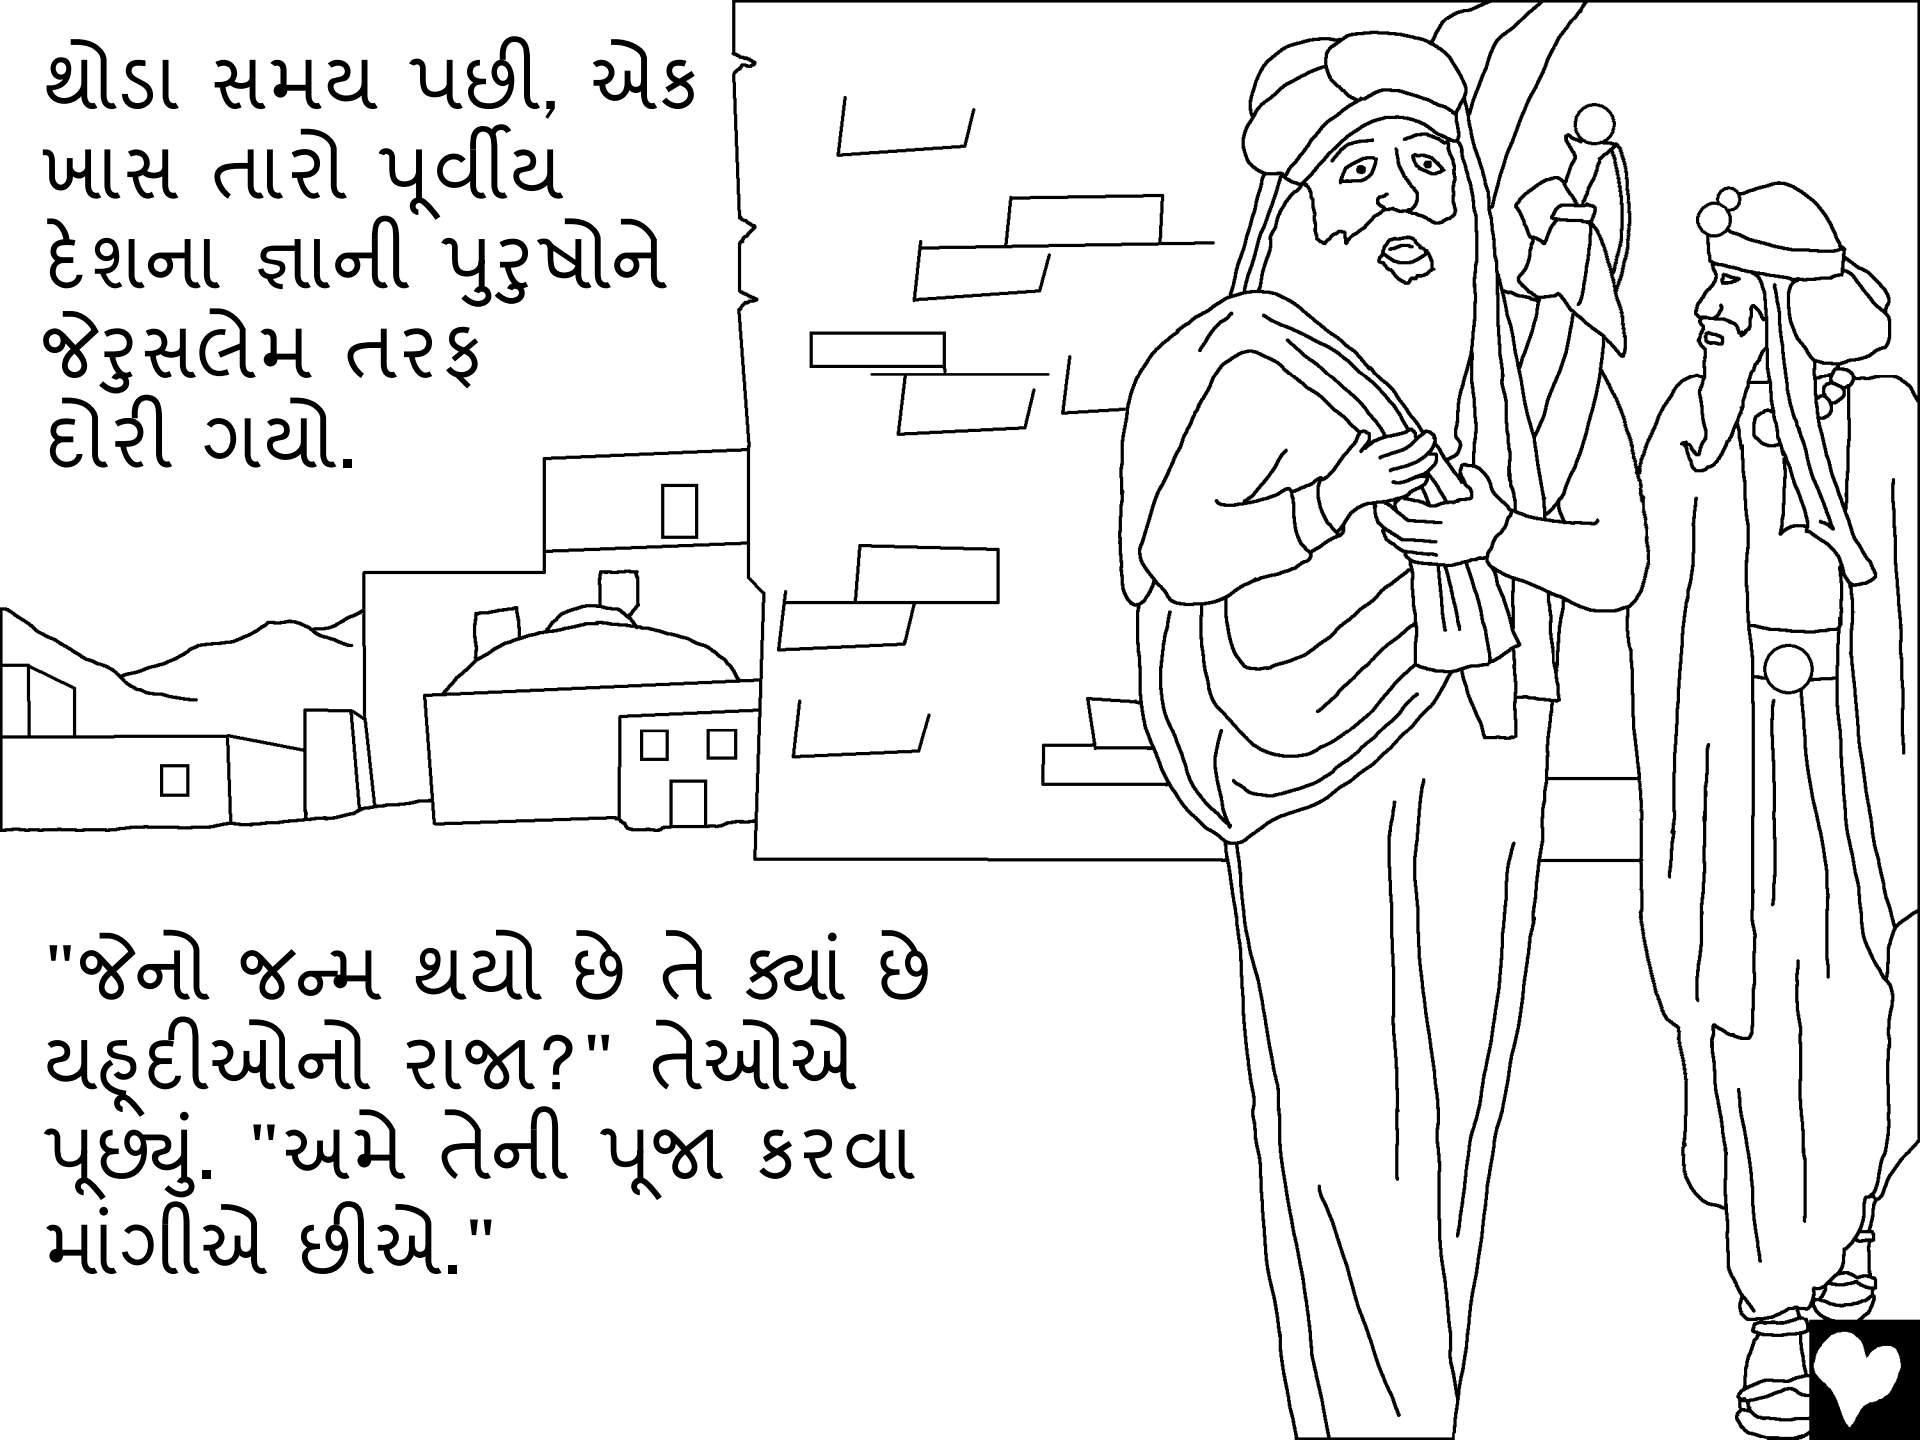 થોડા સમય પછી, એક
ખાસ તારો પૂર્વીય
દેશના જ્ઞાની પુરુષોને
જેરુસલેમ તરફ
દોરી ગયો.
"જેનો જન્મ થયો છે તે ક્યાં છે
યહૂદીઓનો રાજા?" તેઓએ
પૂછ્યું. "અમે તેની પૂજા કરવા
માંગીએ છીએ."